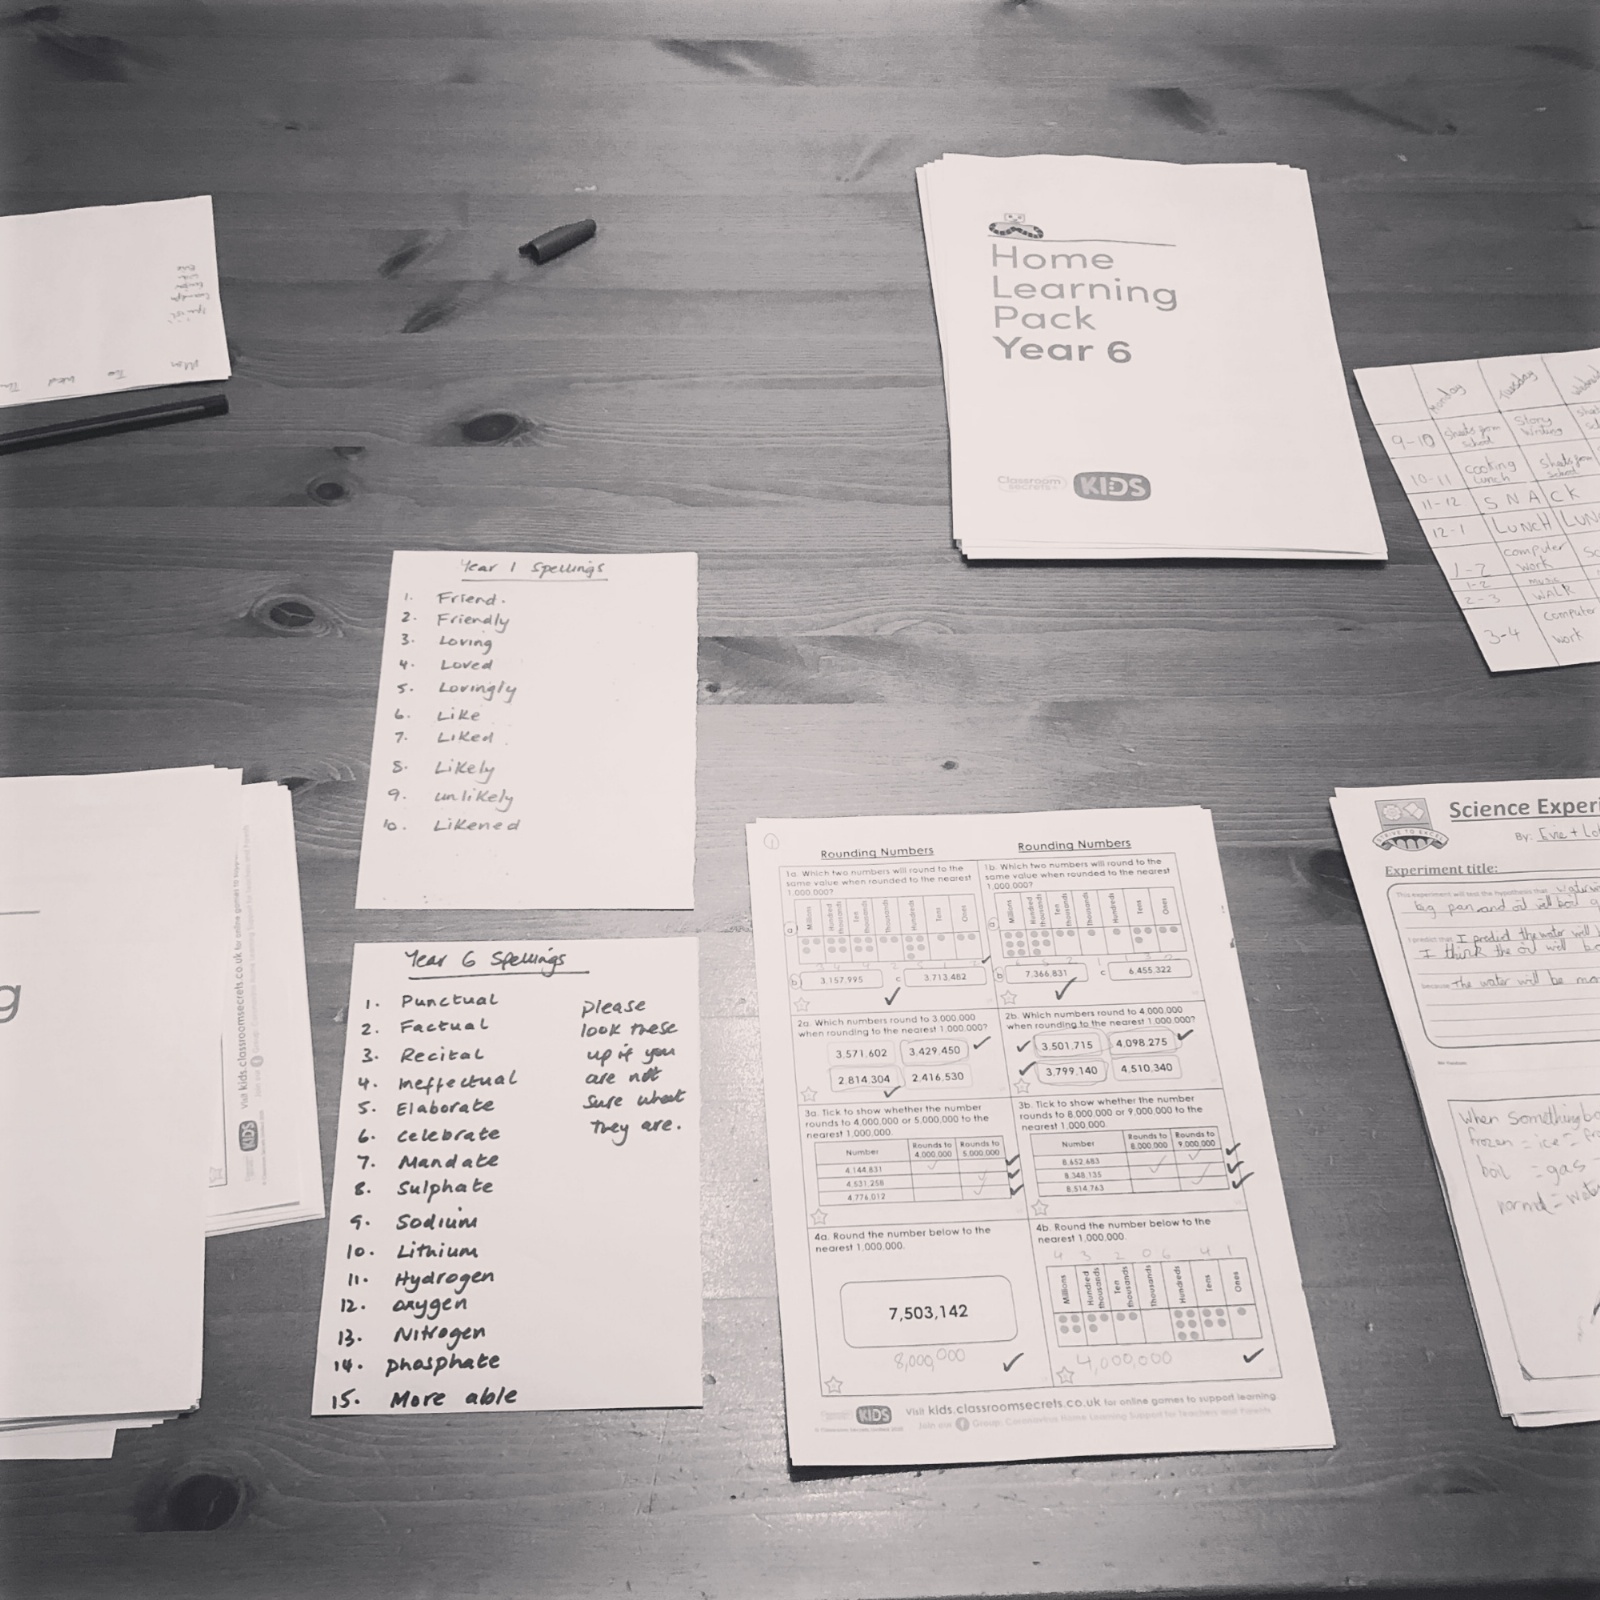 Home
Learning
Pack
Year 6
Classroom
Secrets
KIDS
Monday
Tuesday
9-10
Sheets from
school
Story
writing
10-11
Cooking
Lunch
Sheets from
school
11-12
SNACK
12-1
LUNCH
1-2
computer
work
1-2
music
2-3
WALK
3-4
computer
work
Year 1 Spellings
1. Friend.
2. Friendly
3. Loving
4. Loved
5. Lovingly
6. Like
7. Liked
8. Likely
9. unlikely
10. Likened
Year 6 Spellings
1. Punctual
2. Factual
3. Recital
4. Ineffectual
5. Elaborate
6. Celebrate
7. Mandate
8. Sulphate
9. Sodium
10. Lithium
11. Hydrogen
12. oxygen
13. Nitrogen
14. phosphate
15. More able
please
look these
up if you
are not
sure what
they are.
Visit kids.classroomsecrets.co.uk for online games to
KIDS
g
Rounding Numbers
1a. Which two numbers will round to the
same value when rounded to the nearest
1,000,000?
Millions
Hundred
thousands
Ten
thousands
thousands
Hundreds
Tens
Ones
3,157,995
c
3,713,482
2a. Which numbers round to 3,000,000
when rounding to the nearest 1,000,000?
3,571,602
3,429,450
2,814,304
2,416,530
3a. Tick to show whether the number
rounds to 4,000,000 or 5,000,000 to the
nearest 1,000,000.
Number
Rounds to
4,000,000
Rounds to
5,000,000
4,144,831
4,531,258
4,776,012
4a. Round the number below to the
nearest 1,000,000.
7,503,142
8,000,000
Rounding Numbers
1b. Which two numbers will round to the
same value when rounded to the nearest
1,000,000?
Millions
Hundred
thousands
Ten
thousands
thousands
Hundreds
Tens
Ones
b
7,366,831
c
6,455,322
2b. Which numbers round to 4,000,000
when rounding to the nearest 1,000,000?
3,501,715
4,098,275
3,799,140
4,510,340
3b. Tick to show whether the number
rounds to 8,000,000 or 9,000,000 to the
nearest 1,000,000.
Number
Rounds to
8,000,000
Rounds to
9,000,000
8,652,683
8,348,135
8,514,763
4b. Round the number below to the
nearest 1,000,000.
4 3 2 0 6 4 1
Millions
Hundred
thousands
Ten
thousands
Thousands
Hundreds
Tens
Ones
4,000,000
KIDS
Visit kids.classroomsecrets.co.uk for online games to support learning.
Join our Group: Coronavirus Home Learning Support for Teachers and Parents
Science Experi
By: Evie +
Experiment title:
This experiment will test the hypothesis that
big pan and oil will boil
I predict that I predict the water will
I think the oil will
because The water will be
When Something
frozen = ice =
boil = gas
normal = water